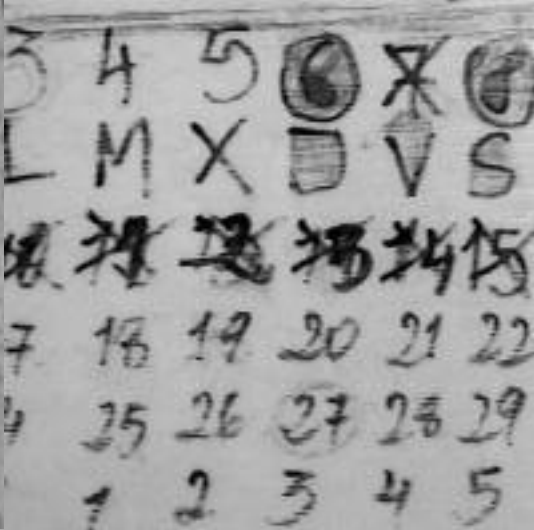 3 4 5 6 7 8
L M X D V S
11 12 13 14 15
7 18 19 20 21 22
4 25 26 27 28 29
1 2 3 4 5